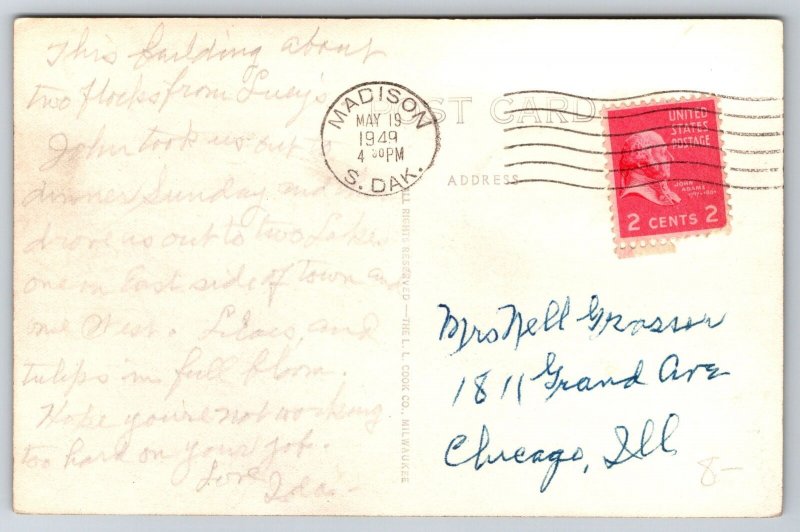 This building about
two blocks from Lucy's
John took us out to
dinner Sunday and
drove us out to two Lakes
one on East side of town and
one West. Lilacs, and
tulips in full bloom.
Hope you're not working
too hard on your job.
Love Ida -
ALL RIGHTS RESERVED — THE L. L. COOK CO., MILWAUKEE
POST CARD
MADISON
MAY 19
1949
4 30 PM
S. DAK.
ADDRESS
UNITED
STATES
POSTAGE
JOHN
ADAMS
2 CENTS 2
Mrs Nell Grosser
1811 Grand Ave
Chicago, Ill
8-